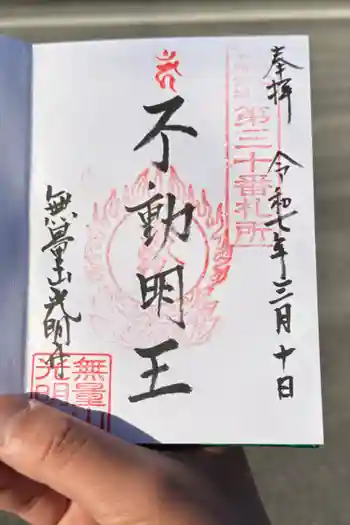 奉拝 令和七年三月十日
第三十番札所
不動明王
無量山光明寺
無量山
光明